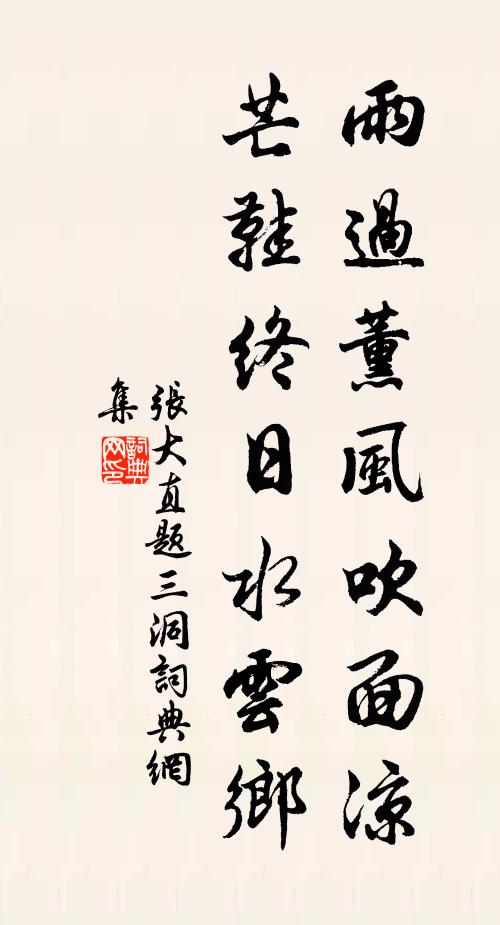 雨過薰風吹面涼
芒鞋終日水雲鄉
張大直題三洞詞典網
集
詞典网印